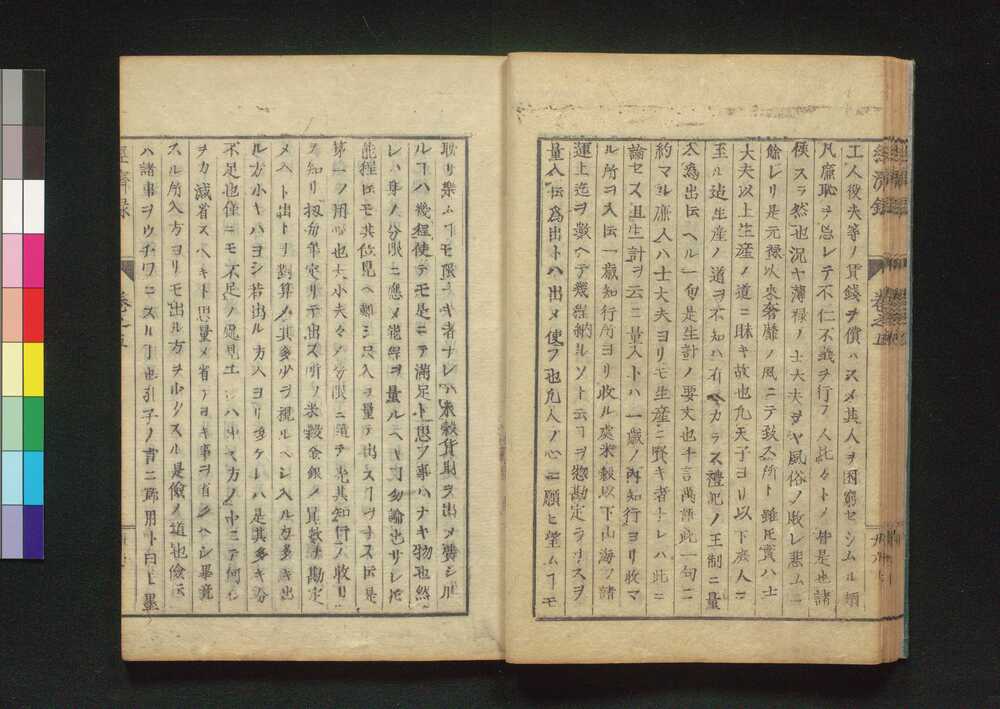 經濟録
卷之五
工人役夫等ノ貸錢ヲ償ハスメ其人ヲ困窮セシムル類
凡廉恥ヲ忘レテ不仁不義ヲ行フ人比々トノ皆是也諸
侯スラ然也況ヤ薄禄ノ士大夫ヲヤ風俗ノ敗レ悲ムニ
餘レリ是元禄以來奢靡ノ風ニテ致ス所ト雖𪜈實ハ士
大夫以上生産ノ道ニ昧キ故也凡天子ヨリ以下庶人ニ
至ル迠生産ノ道ヲ不知ハ有ヘカラス禮記ノ王制ニ量
入為出𪜈ヘル一句是生計ノ要丈也千言萬語此一句ニ
約マル庶人ハ士大夫ヨリモ生産ニ賢キ者ナレハ此ニ
論セス且生計ヲ云ニ量入トハ一歳ノ内知行ヨリ收マ
ル所ヲ入𪜈一歳知行所ヨリ收ル處米穀以下山海ノ諸
運上迄ヲ數ヘテ幾程納ルソト云ヿヲ惣勘定ラナスヲ
量入𪜈為出トハ出メ使フ也凡人ノ心ニ願ヒ望ムヿモ
耽リ樂ムヿモ限ナキ者ナレハ米穀貨財ヲ出メ費シ用
ルヿハ幾程使テモ是ニテ滿足ト思フ事ハナキ物也然
レハ身ノ分限ニ應メ能程ヲ量ルヘキヿ勿論也サレ𪜈
能程𪜈モ其位見ヘ難シ只入ヲ量テ出スヿヲナス𪜈是
第一ノ用心也大小夫々ノ分限ニ隨テ先其知行ノ收リ
ヲ知リ扨毎年定リテ出ス所ノ米穀金銀ノ員數ヲ勘定
メ入ト出トヲ對算ノ其多少ヲ視ルヘシ入ル方多キ出
ル方小キハヨシ若出ル方入ヨリ多ケレハ是其多キ分
不足也僅ニモ不足ノ處見エ
ヲカ減省スヘキト思量メ省テヨキ事ヲ省クヘシ畢竟
スル所入方ヨリモ出ル方ヲ少クスル是儉ノ道也儉𪜈
ハ諸事ヲウチワニスルヿ也孔子ノ書ニ
經濟録
卷之五